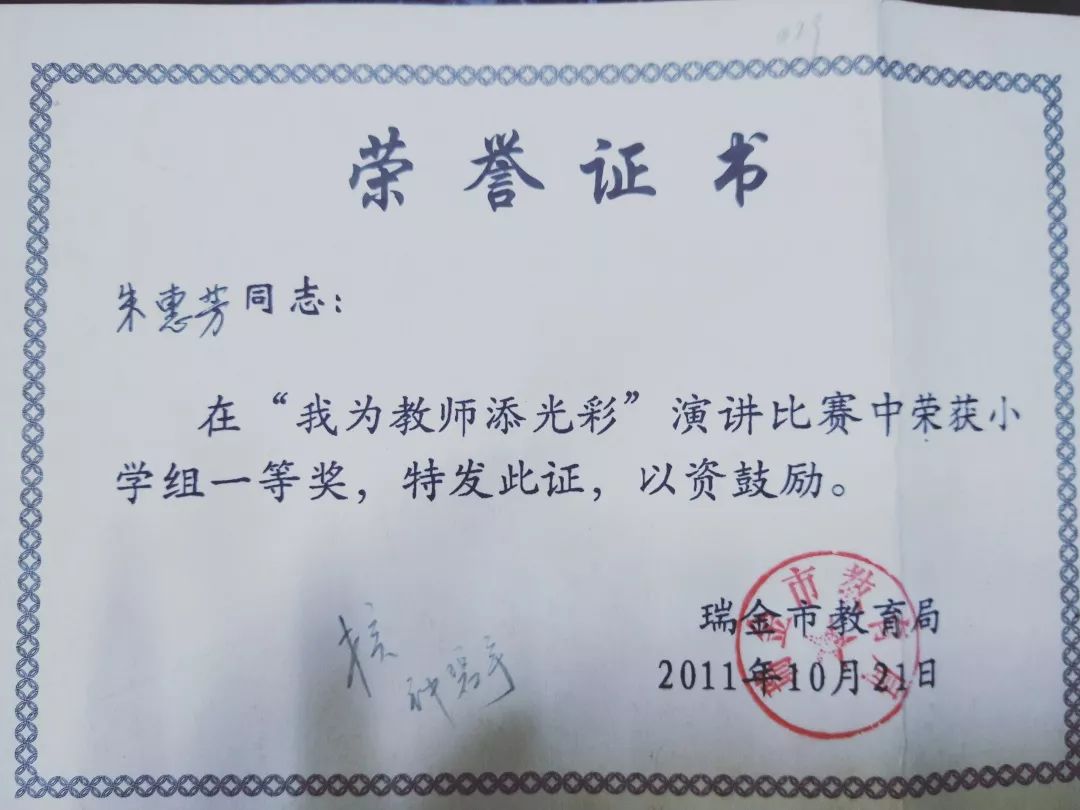 荣誉证书
朱惠芳同志：
在“我为教师添光彩”演讲比赛中荣获小
学组一等奖，特发此证，以资鼓励。
瑞金市教育局
2011年10月21日
核